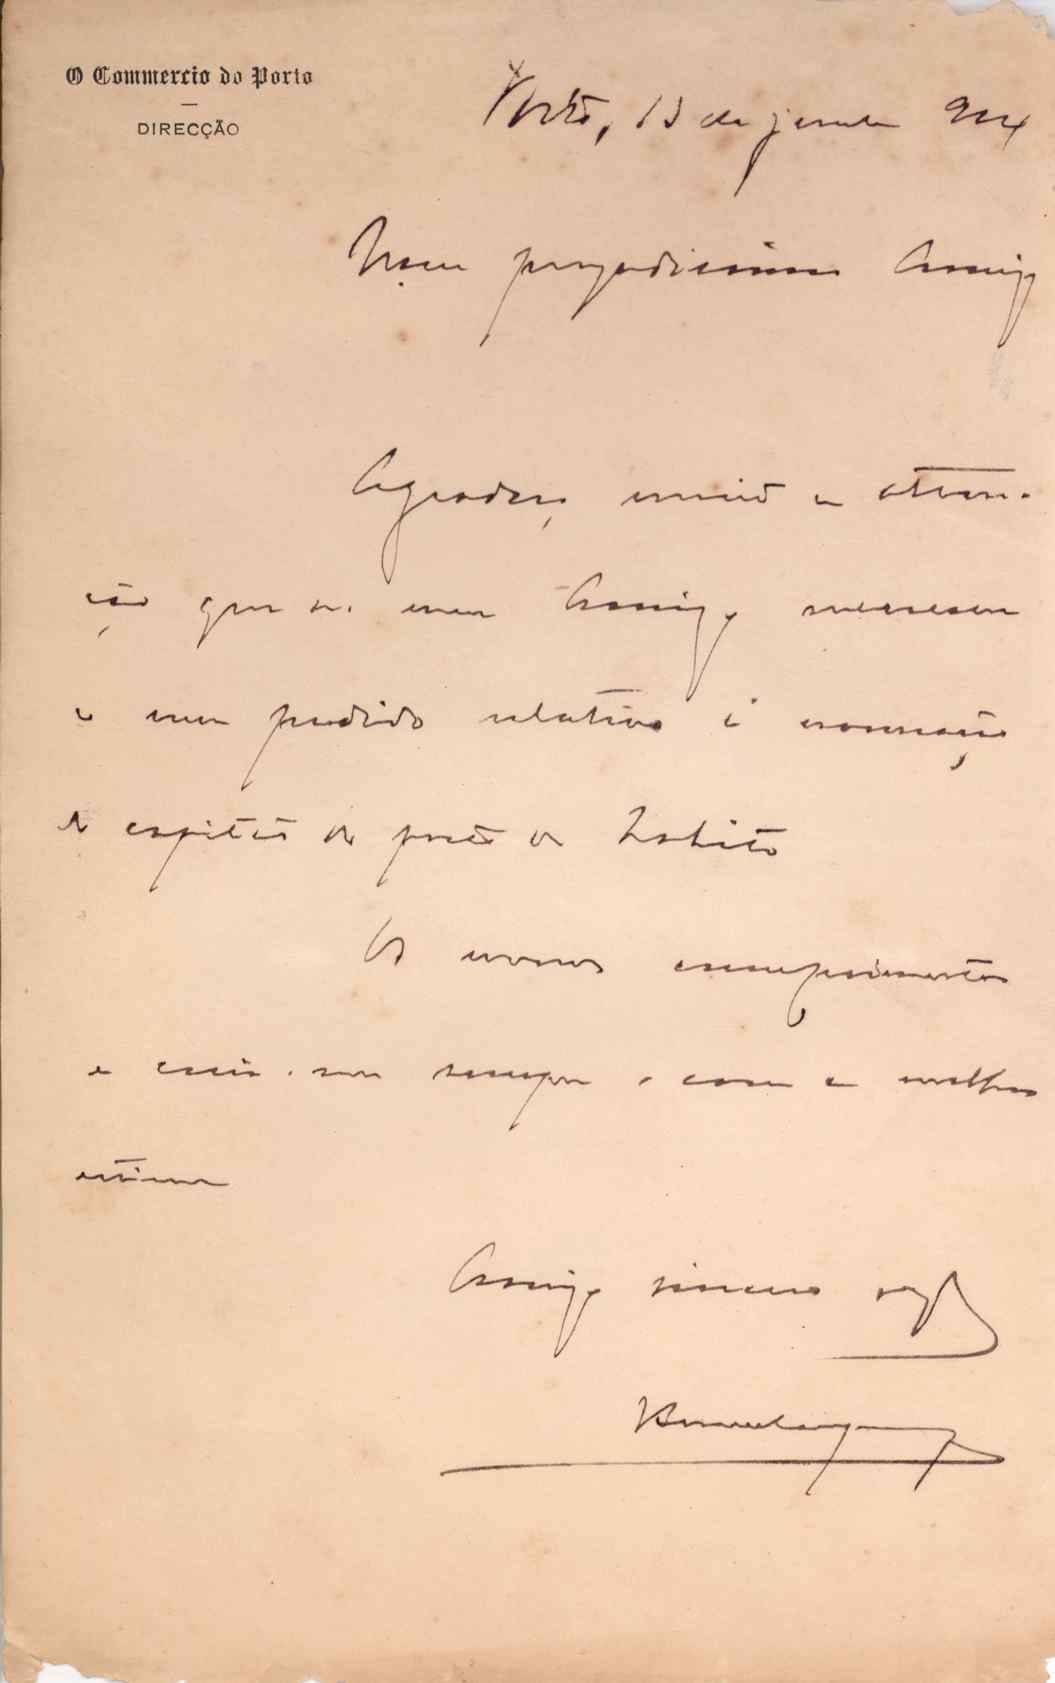 O Commercio do Porto
DIRECÇÃO
Porto, 13 de janeiro 904
Meu presadissimo Amigo
Agradeço muito a atten-
ção que ao meu Amigo mereceu
o meu pedido relativo á nomeação
de capitão do porto do Lobito
Os novos cumprimentos
e creia-me sempre, com a melhor
estima
Amigo sincero